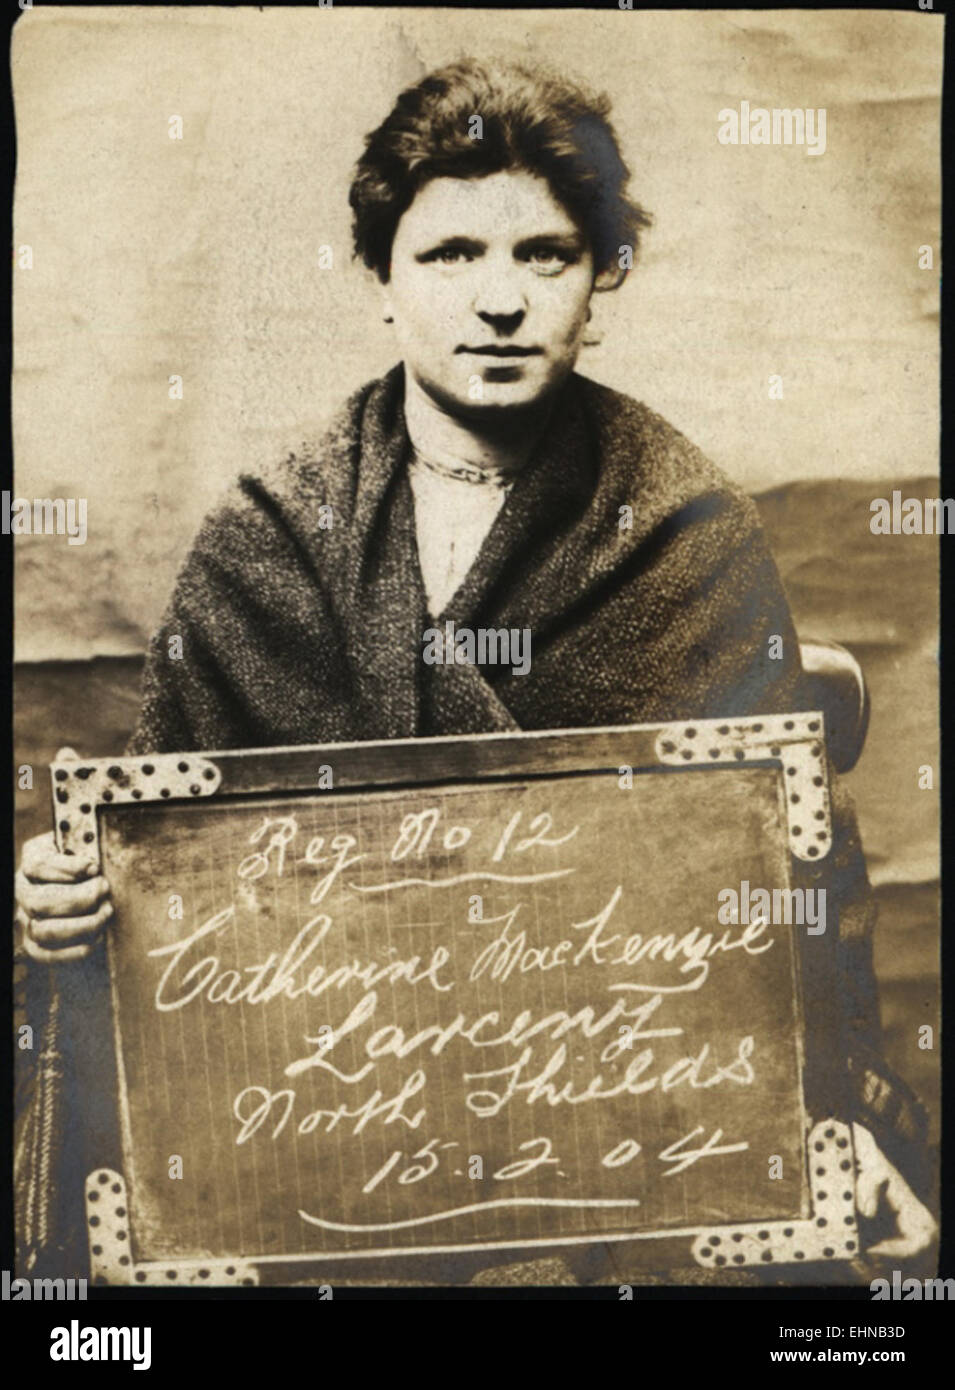 Reg No 12
Catherine MacKenzie
Larceny
North Shields
15.2.04
alamy
alamy
alamy
alamy
alamy
alamy
alamy
alamy
Image ID: EHNB3D
www.alamy.com